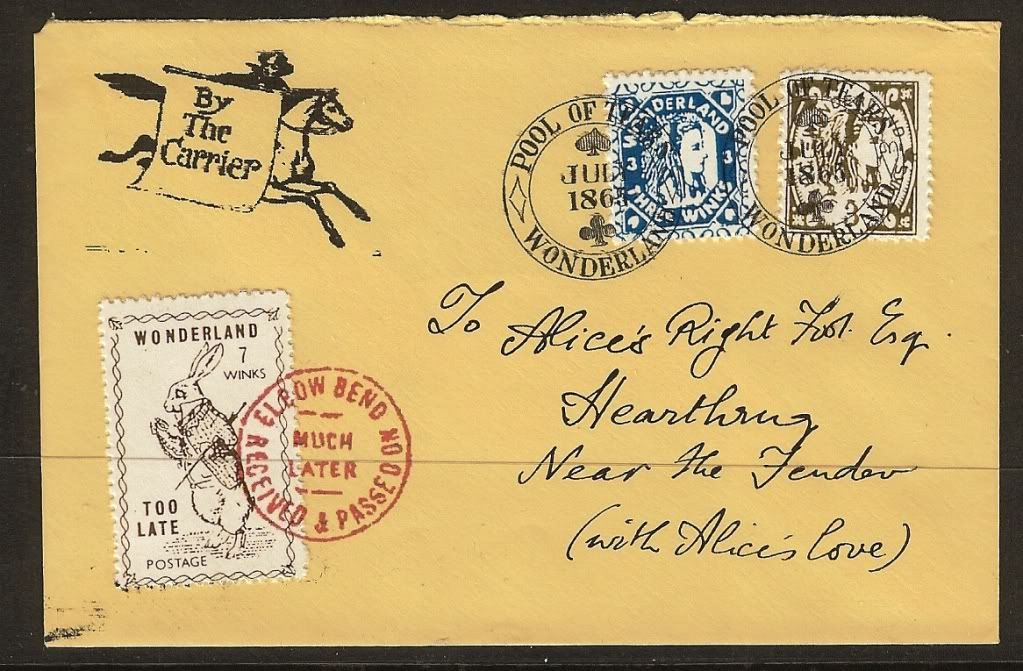 By
The
Carrier
POOL OF TEARS
JUL
1865
WONDERLAND
WONDERLAND
3 3
THREE WINKS
POOL OF TEARS
JUL
1865
WONDERLAND
3
To Alice's Right Foot. Esq.
Hearthrug
Near the Fender
(with Alice's love)
WONDERLAND
7
WINKS
TOO
LATE
POSTAGE
ELBOW BEND
MUCH
LATER
RECEIVED & PASSED ON